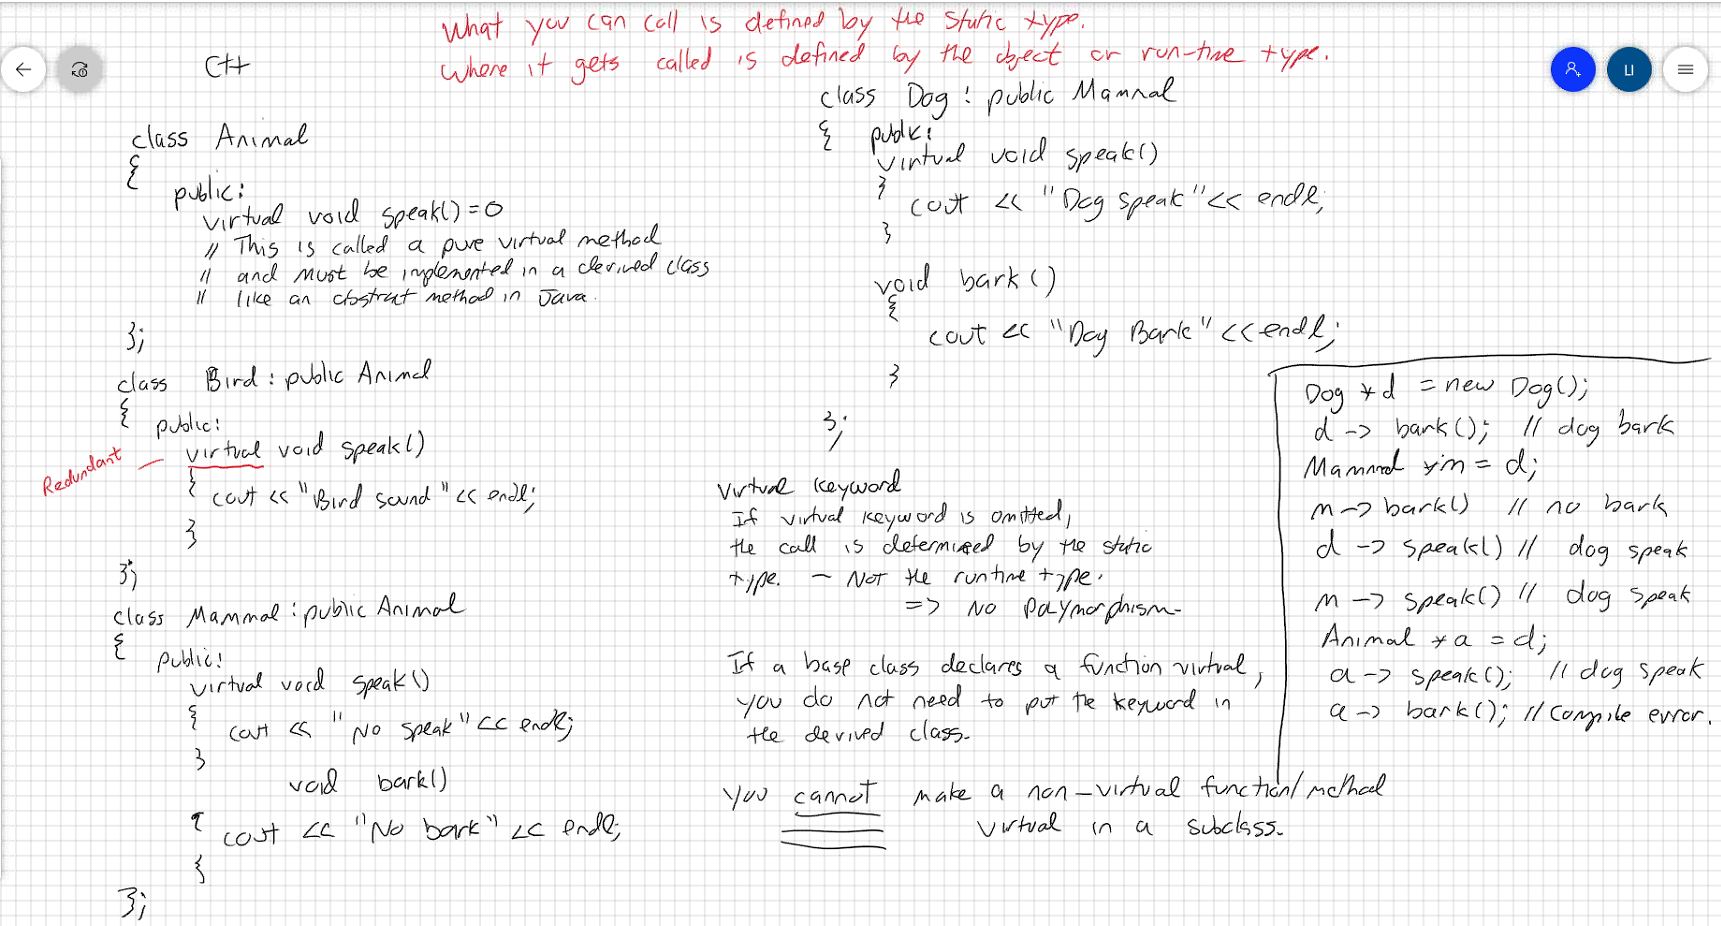 What you can call is defined by the static type.
Where it gets called is defined by the object or run-time type.
C++
class Animal
{
public:
virtual void speak()=0
// This is called a pure virtual method
// and must be implemented in a derived class
// like an abstract method in Java.
};
class Bird : public Animal
{
public:
Redundant — virtual void speak()
{
cout << "Bird sound" << endl;
}
};
class Mammal : public Animal
{
public:
virtual void speak()
{
cout << "No speak" << endl;
}
void bark()
{
cout << "No bark" << endl;
{
};
class Dog : public Mammal
{
public:
virtual void speak()
}
cout << "Dog speak" << endl;
}
void bark()
{
cout << "Dog Bark" << endl;
}
};
Virtual Keyword
If virtual keyword is omitted,
the call is determined by the static
type. – Not the runtime type.
=> No Polymorphism-
If a base class declares a function virtual,
you do not need to put the keyword in
the derived class.
You cannot make a non-virtual function/method
virtual in a subclass.
Dog *d = new Dog();
d -> bark(); // dog bark
Mammal *m = d;
m -> bark() // no bark
d -> speak() // dog speak
m -> speak() // dog speak
Animal *a = d;
a -> speak(); // dog speak
a -> bark(); // Compile error.
LI